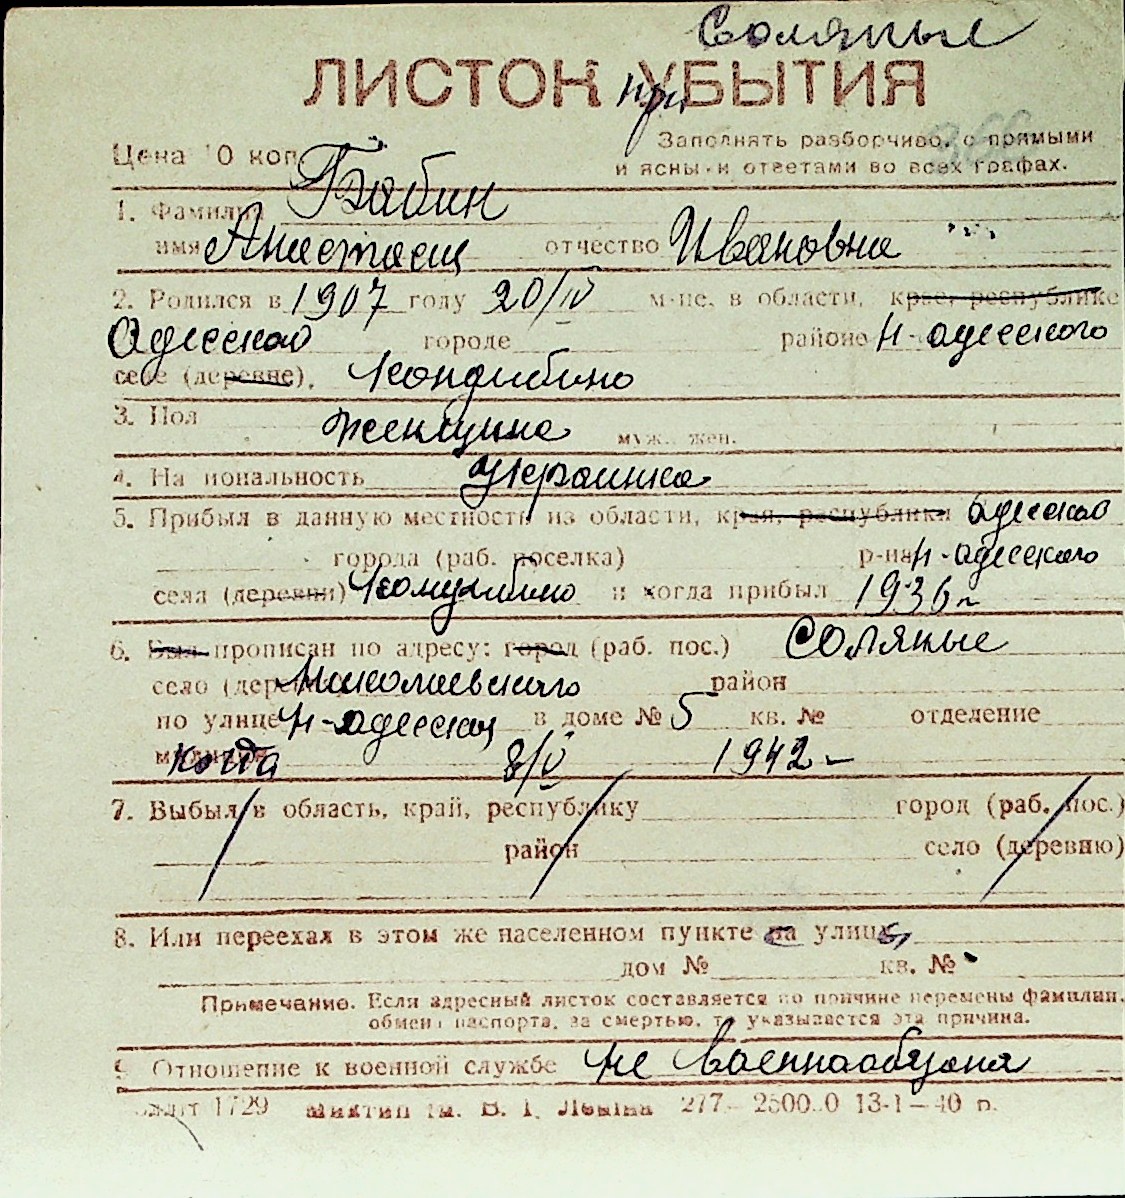 Соляные
ЛИСТОК при УБЫТИЯ
Заполнять разборчиво, с прямыми
Цена 10 коп.
и ясными ответами во всех графах.
1. Фамилия Бабин
имя Анастасия отчество Ивановна
2. Родился в 1907 году 20/IV м-це, в области, крае, республике
Одесской городе районе Н-Одесского
селе (деревне), Кандибино
3. Пол женщина муж., жен.
4. Национальность Украинка
5. Прибыл в данную местность из области, края, республики Одесской
города (раб. поселка) р-на Н-Одесского
села (деревни) и когда прибыл 1936 г
6. Был прописан по адресу: город (раб. пос.) Соляные
село (деревня) Николаевского район
по улице Н-Одесская в доме № 5 кв. № отделение
милиции когда 8/V 1942 г
7. Выбыл в область, край, республику город (раб. пос.)
район село (деревню)
8. Или переехал в этом же населенном пункте на улицу
дом № кв. №
Примечание. Если адресный листок составляется по причине перемены фамилии,
обмена паспорта, за смертью, то указывается эта причина.
9. Отношение к военной службе не военнообязана
1729 им. В. И. Ленина 277— 13-1—40 г.